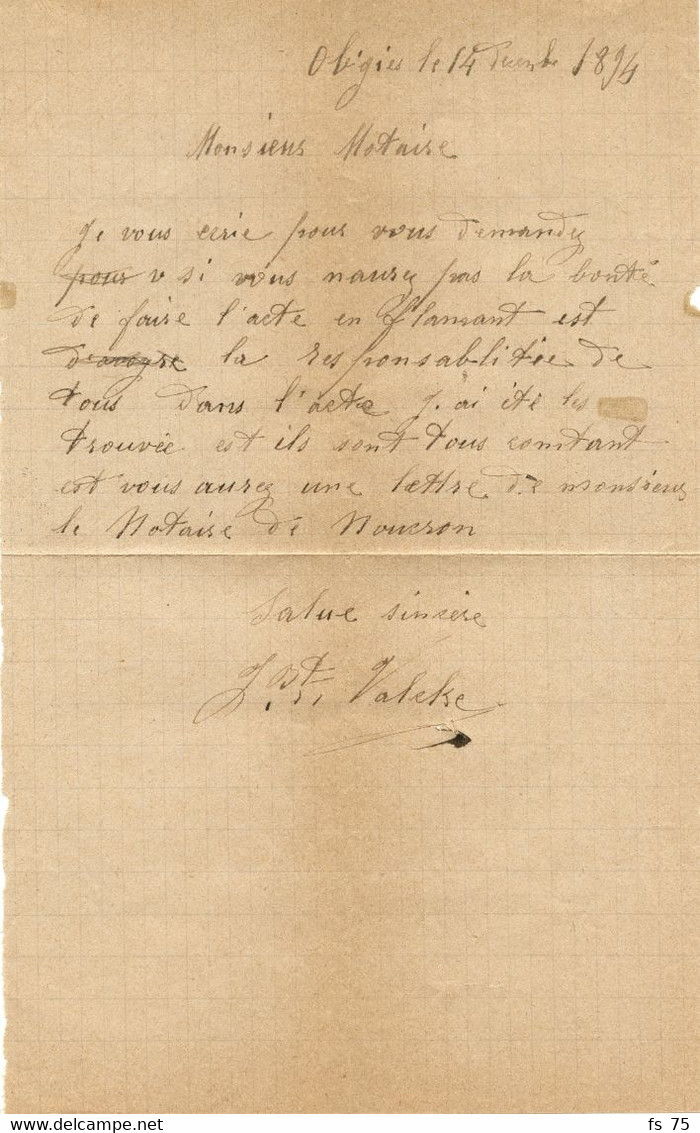 Obigies le 14 decembre 1894
Monsieur Notaire
Je vous ecrie pour vous demandez
pour v si vous naurez pas la bonté
de faire l'acte en flamant est
la responsablitée de
tous dans l'acte J'ai été les
trouvée est ils sont tous contant
est vous aurez une lettre de monsieur
le Notaire de Moucron
Salue sincère
J. Bt. Valcke
fs 75